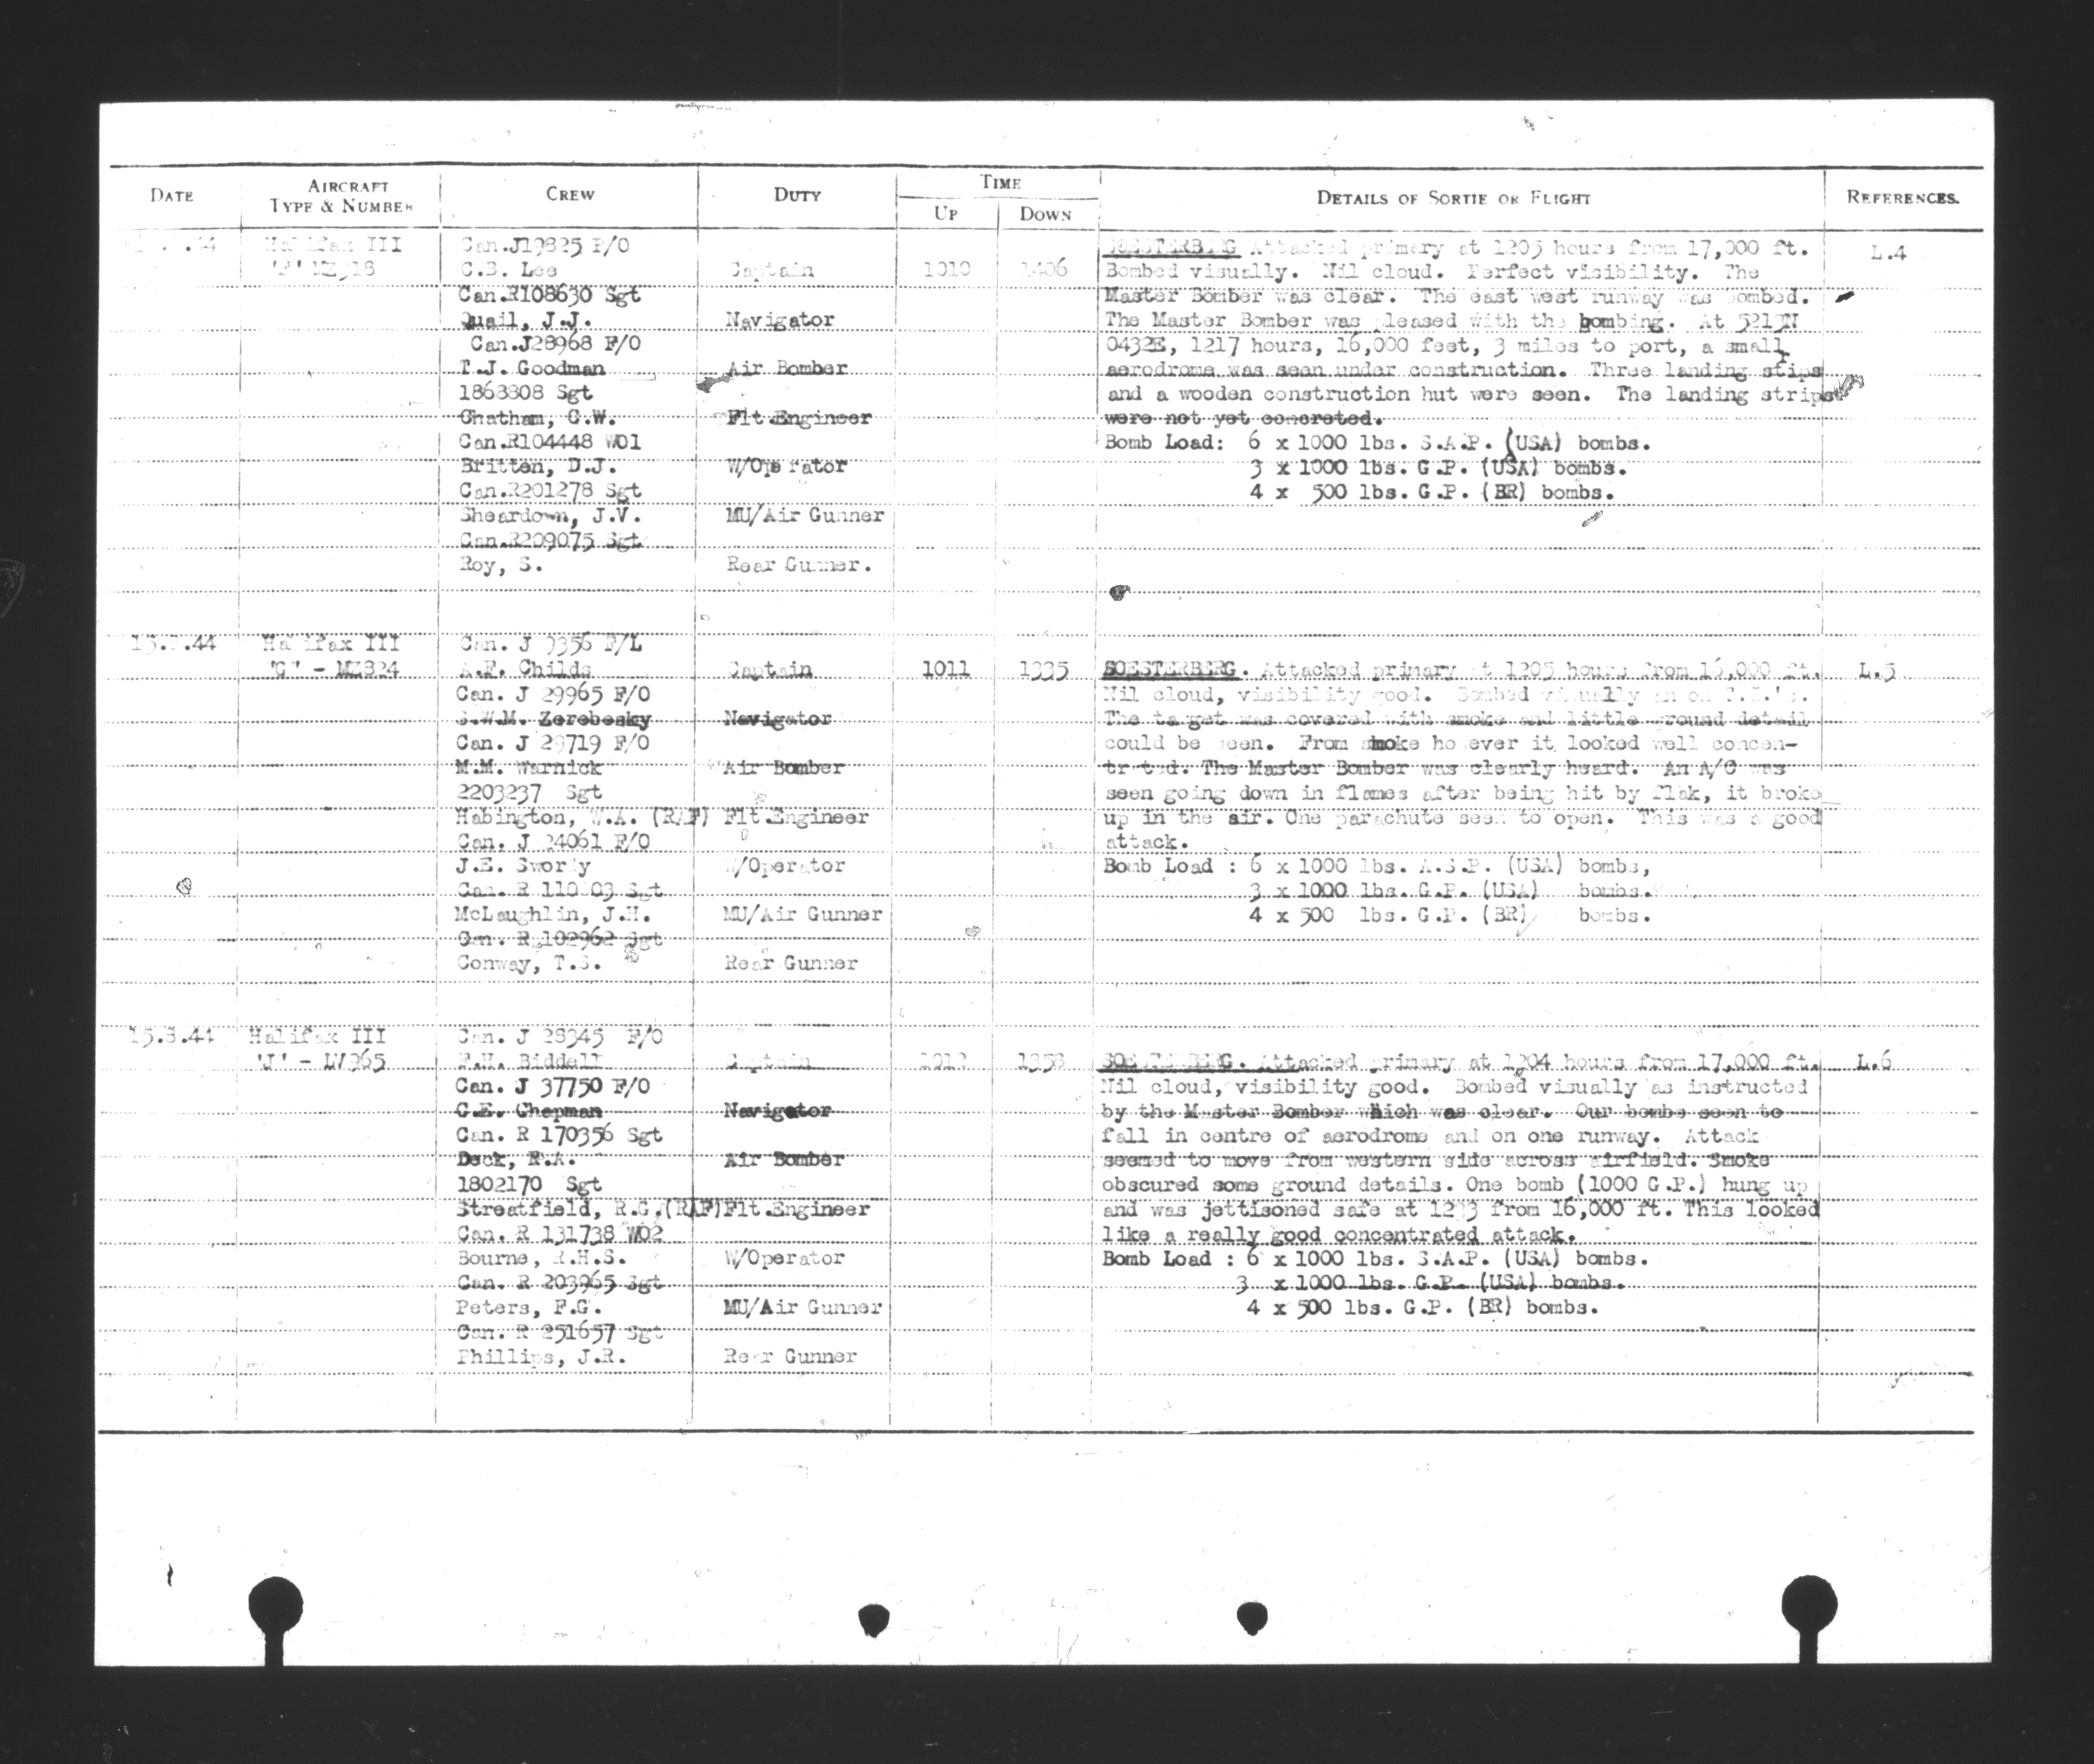 DATE AIRCRAFT TYPE & NUMBER CREW DUTY TIME UP DOWN DETAILS OF SORTIE OR FLIGHT REFERENCES.
Halifax III Can.J19825 F/O SOESTERBERG Attacked primary at 1205 hours from 17,000 ft. L.4
C.B. Lee Captain 1010 1406 Bombed visually. Nil cloud. Perfect visibility. The
Can.R108630 Sgt Master Bomber was clear. The east west runway was bombed.
Quail, J.J. Navigator The Master Bomber was pleased with the bombing. At 5213N
Can.J28968 F/O 0432E, 1217 hours, 16,000 feet, 3 miles to port, a small
T.J. Goodman Air Bomber aerodrome was seen under construction. Three landing stips
1863808 Sgt and a wooden construction hut were seen. The landing strips
Chatham, C.W. Flt.Engineer were not yet concreted.
Can.R104448 WO1 Bomb Load: 6 x 1000 lbs. S.A.P. (USA) bombs.
Britten, D.J. W/Operator 3 x 1000 lbs. G.P. (USA) bombs.
Can.R201278 Sgt 4 x 500 lbs. G.P. (BR) bombs.
Sheardown, J.V. MU/Air Gunner
Can.R209075 Sgt
Roy, S. Rear Gunner.
Halifax III Can. J 9356 F/L
"G" - MZ824 A.F. Childs Captain 1011 1335 SOESTERBERG. Attacked primary at 1205 hours from 16,000 ft. L.5
Can. J 29965 F/O Nil cloud, visibility good. Bombed visually an on T.I.'s.
Zerebesky Navigator The target was covered with smoke and little ground detail
Can. J 29719 F/O could be seen. From smoke however it looked well concen-
M.M. Warnick Air Bomber trated. The Master Bomber was clearly heard. An A/C was
2203237 Sgt seen going down in flames after being hit by flak, it broke
Habington, W.A. (RAF) Flt.Engineer up in the air. One parachute seen to open. This was a good
Can. J 24061 F/O attack.
J.E. W/Operator Bomb Load : 6 x 1000 lbs. A.S.P. (USA) bombs,
Can. R Sgt 3 x 1000 lbs. G.P. (USA) bombs.
McLaughlin, J.H. MU/Air Gunner 4 x 500 lbs. G.P. (BR) bombs.
Can. R 102962 Sgt
Conway, T.S. Rear Gunner
15.8.44 Halifax III Can. J 28345 F/O
'J' - LV965 F.H. Biddell Captain 1012 1358 SOESTERBERG. Attacked primary at 1204 hours from 17,000 ft. L.6
Can. J 37750 F/O Nil cloud, visibility good. Bombed visually as instructed
C.E. Chapman Navigator by the Master Bomber which was clear. Our bombs seen to
Can. R 170356 Sgt fall in centre of aerodrome and on one runway. Attack
Deck, R.A. Air Bomber seemed to move from western side across airfield. Smoke
1802170 Sgt obscured some ground details. One bomb (1000 G.P.) hung up
Streatfield, R.G.(RAF) Flt.Engineer and was jettisoned safe at from 16,000 ft. This looked
Can. R 131738 WO2 like a really good concentrated attack.
Bourne, R.H.S. W/Operator Bomb Load : 6 x 1000 lbs. S.A.P. (USA) bombs.
Can. R 203965 Sgt 3 x 1000 lbs. G.P. (USA) bombs.
Peters, F.G. MU/Air Gunner 4 x 500 lbs. G.P. (BR) bombs.
Can. R 251657 Sgt
Phillips, J.R. Rear Gunner